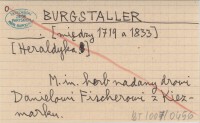 BURGSTALLER
[między 1719 a 1833]
[Heraldyka]
M. in. herb nadany drowi
Danielowi Fischerowi z Kież-
marku.